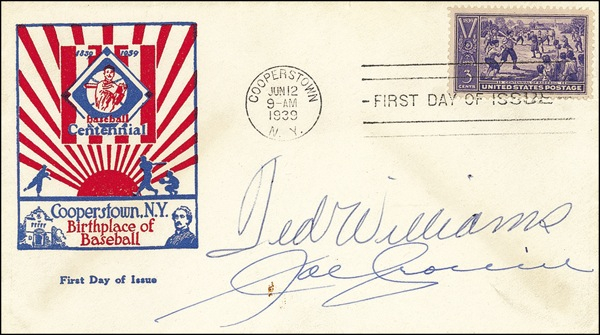 1839 1939
baseball
Centennial
Cooperstown, N.Y.
Birthplace of
Baseball
First Day of Issue
COOPERSTOWN
JUN 12
9-AM
1939
N. Y.
FIRST DAY OF ISSUE
3
CENTS
UNITED STATES POSTAGE
Ted Williams
Joe Cronin